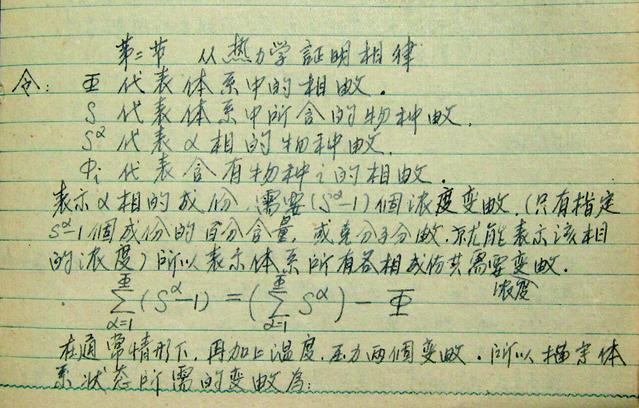 第二节 从热力学証明相律
令: Φ 代表体系中的相数.
S 代表体系中所含的物种数.
S^α 代表α相的物种数.
Φ_i 代表含有物种i的相数.
表示α相的成份,需要(S^α-1)個浓度变数.(只有指定
S^α-1個成份的百分含量,或克分子分数,才能表示该相
的浓度)所以表示体系所有各相成份共需要变数.
浓度
\sum_{α=1}^{Φ}(S^α-1)=(\sum_{α=1}^{Φ}S^α)-Φ
在通常情形下,再加上温度.压力两個变数.所以描宗体
系状态所需的变数为: